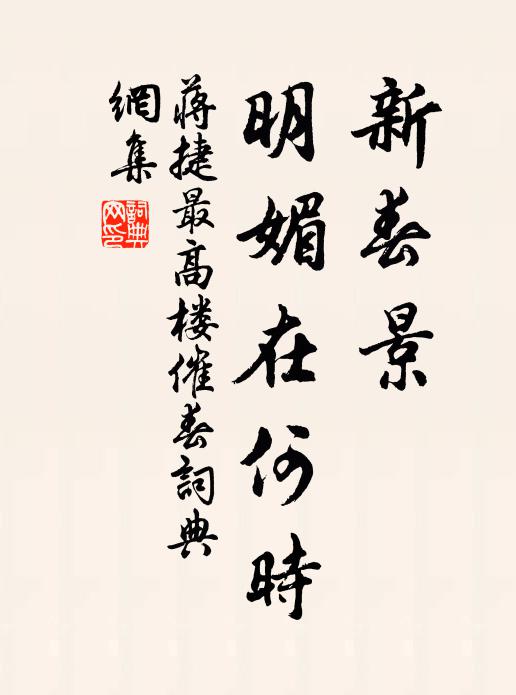 新春景
明媚在何時
蒋捷最高楼催春詞典
網集
詞典网印